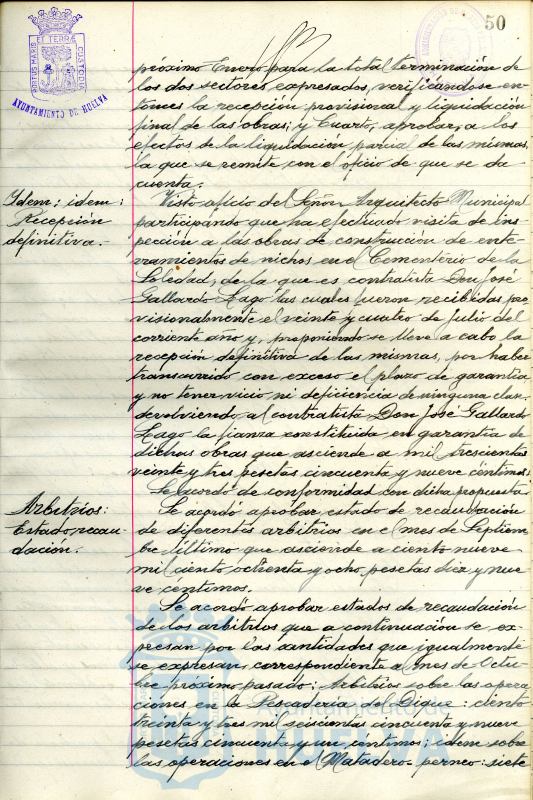 50
PORTUS MARIS ET TERRAE CUSTODIA
AYUNTAMIENTO DE HUELVA
próximo Enero para la total terminación de
los dos sectores expresados, verificándose en-
tonces la recepción provisional y liquidación
final de las obras; y Cuarto, aprobar, a los
efectos de la liquidación parcial de las mismas,
la que se remite con el oficio de que se da
cuenta.
Idem: idem:
Recepción
definitiva.
Visto oficio del Señor Arquitecto Municipal
participando que ha efectuado visita de ins-
pección a las obras de construcción de ente-
rramientos de nichos en el Cementerio de la
Soledad, de la que es contratista Don José
Gallardo Lago las cuales fueron recibidas pro
visionalmente el veinte y cuatro de Julio del
corriente año y, proponiendo se lleve a cabo la
recepción definitiva de las mismas, por haber
transcurrido con exceso el plazo de garantía
y no tener vicio ni deficiencia de ninguna clase
devolviendo al contratista Don José Gallardo
Lago la fianza constituida en garantía de
dichas obras que asciende a mil trescientas
veinte y tres pesetas cincuenta y nueve céntimos.
Se acordó de conformidad con dicha propuesta.
Arbitrios:
Estado, recau-
dación.
Se acordó aprobar estado de recaudación
de diferentes arbitrios en el mes de Septiem
bre último que asciende a ciento nueve
mil ciento ochenta y ocho pesetas diez y nue
ve céntimos.
Se acordó aprobar estados de recaudación
de los arbitrios que a continuación se ex-
presan por las cantidades que igualmente
se expresan, correspondiente al mes de Octu-
bre próximo pasado: Arbitrios sobre las opera
ciones en la Pescadería del Dique: ciento
treinta y tres mil seiscientas cincuenta y nueve
pesetas cincuenta y un céntimos; idem sobre
las operaciones en el Matadero: perneo: siete
Ayuntamiento de
HUELVA